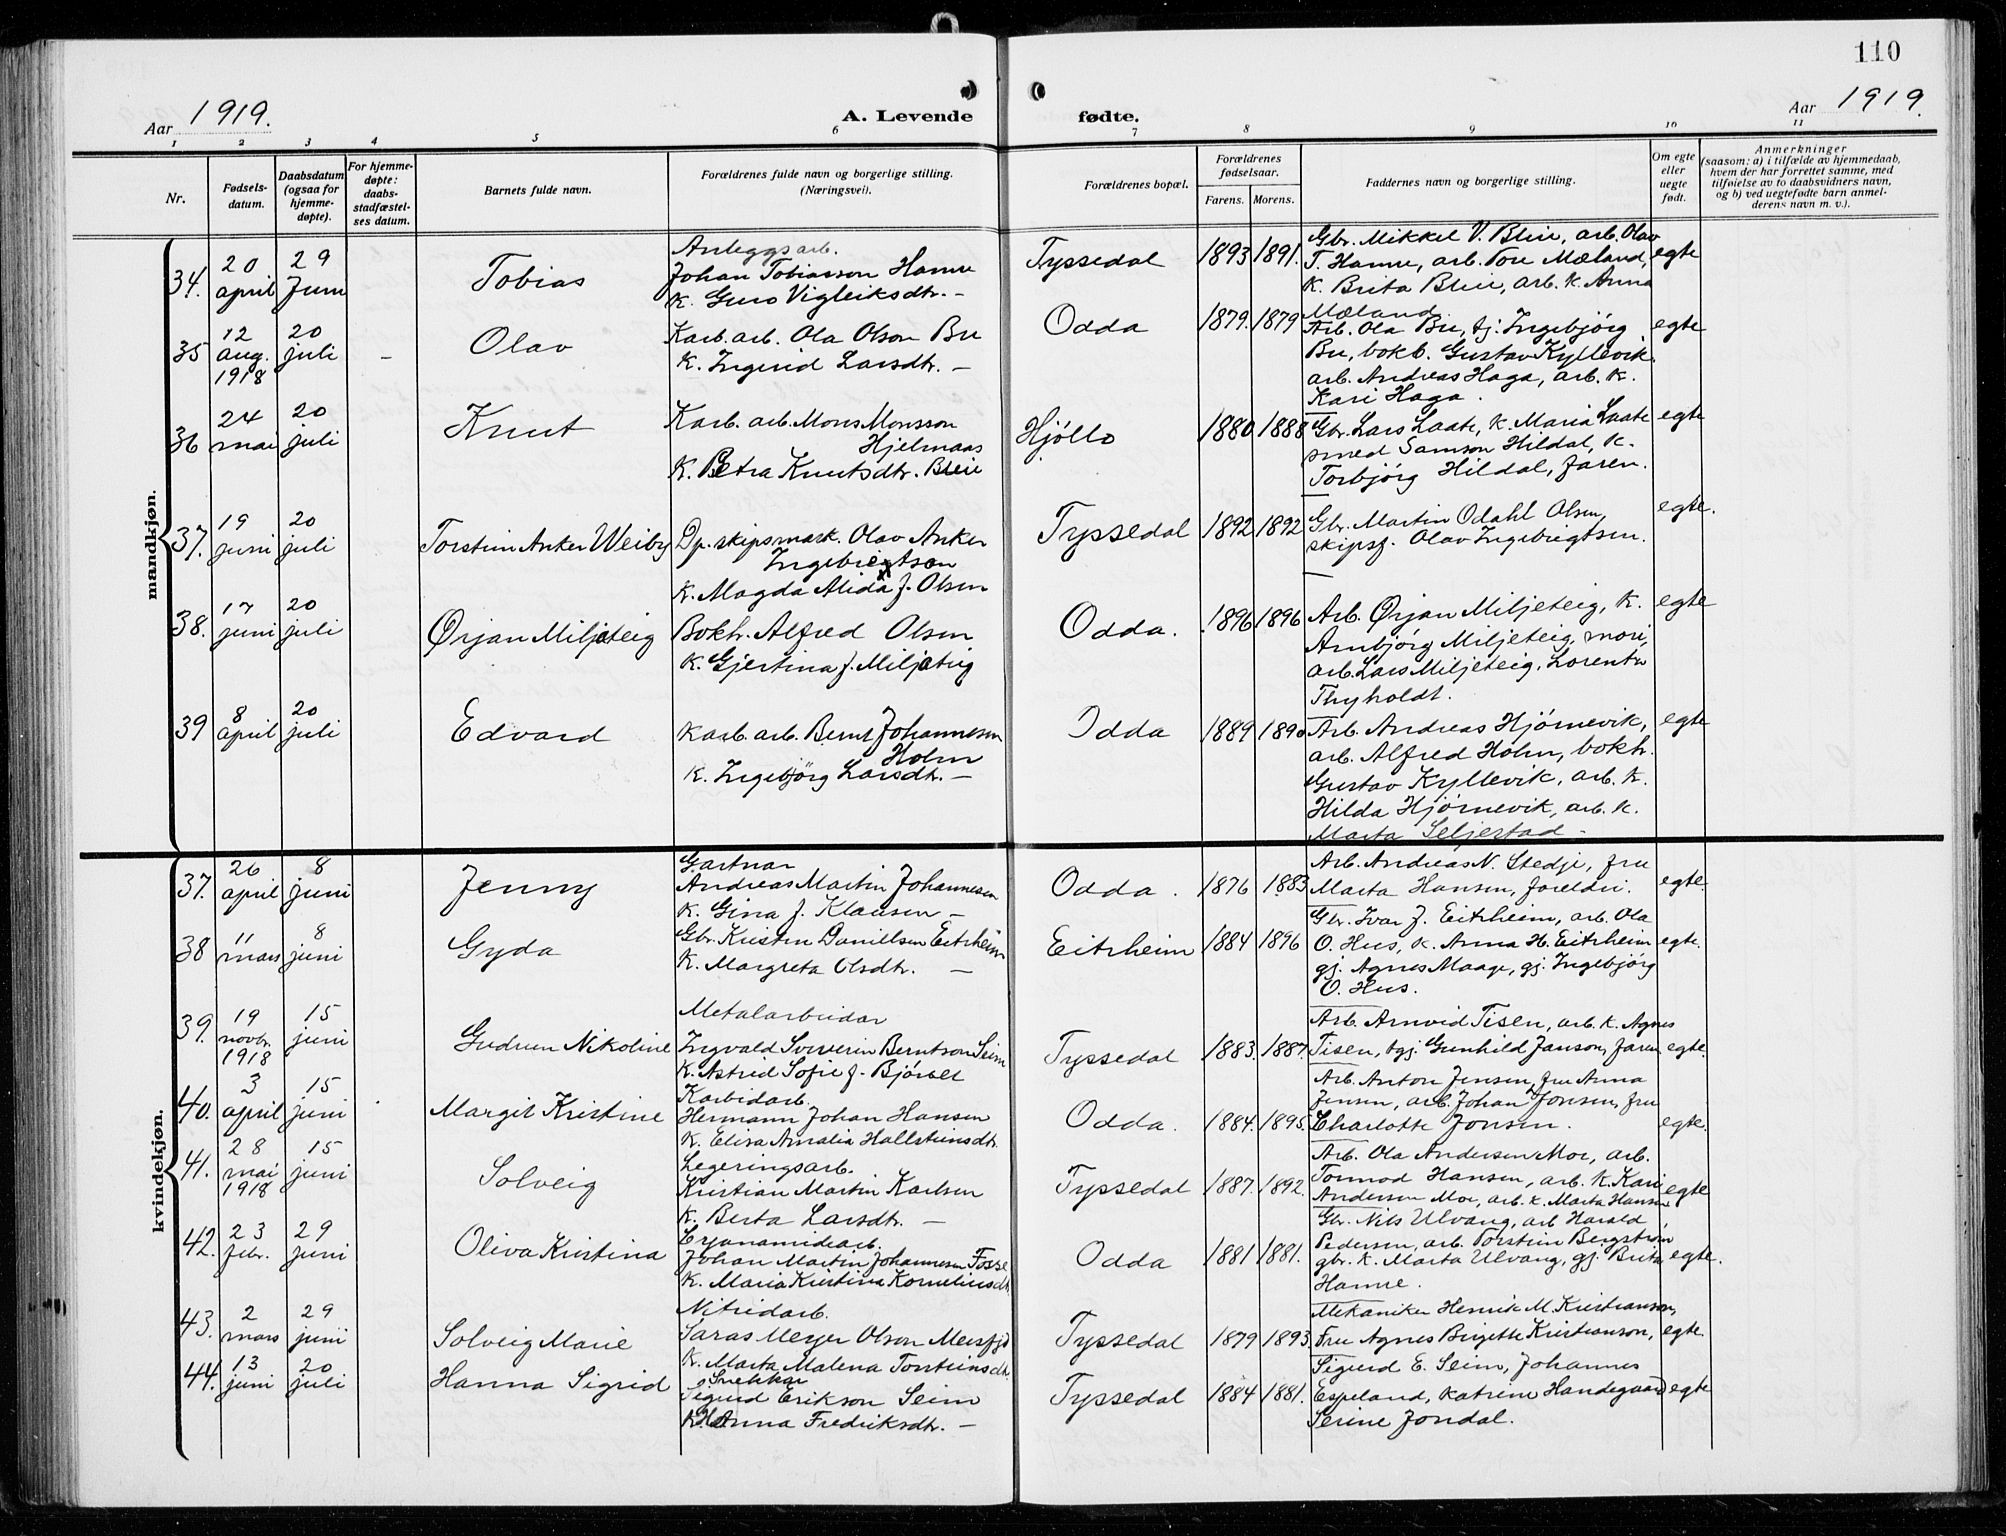 110
Aar 1919.
A. Levende fødte.
Aar 1919.
1 2 3 4 5 6 7 8 9 10 11
Nr.
Fødsels-
datum.
Daabsdatum
(ogsaa for
hjemme-
døpte).
For hjemme-
døpte:
daabs-
stadfæstel-
ses datum.
Barnets fulde navn.
Forældrenes fulde navn og borgerlige stilling.
(Næringsvei).
Forældrenes bopæl.
Forældrenes
fødselsaar.
Farens. Morens.
Faddernes navn og borgerlige stilling.
Om egte
eller
uegte
født.
Anmerkninger
(saasom: a) i tilfælde av hjemmedaab,
hvem der har forrettet samme, med
tilføielse av to daabsvidners navn,
og b) ved uegtefødte barn anmel-
derens navn m. v.).
mandkjøn.
34.
20
april
29
Juni
Tobias
Anleggsarb.
Johan Tobiasson Hamre
K. Guro Vigleiksdtr. –
Tyssedal
1893 1891.
Gbr. Mikkel V. Bleie, arb. Olav
T. Hamre, arb. Tore Mæland,
K. Brita Bleie, arb. K. Anna
Mæland.
egte
35
12
aug.
1918
20
juli
–
Olav
Karb. arb. Ola Olson Bu
K. Ingerid Larsdtr. –
Odda
1879. 1879
Arb. Ola Bu, tj. Ingebjörg
Bu, bokb. Gustav Kyllevik.
arb. Andreas Haga, arb. K.
Kari Haga.
egte
36
24
mai
20
juli
Knut
Karb. arb. Mons Monsson
Hjelmaas
K. Petra Knutsdtr. Bleie
Hjøllo
1880 1888
Gbr. Lars Laate, K. Maria Laate
smed Samson Hildal, K.
Torbjörg Hildal, faren.
egte
37.
19
juni
20
juli
Torstein Anker Weiby
Dp. skipsmask. Olav Anker
Ingebrigtsen
K. Magda Alida f. Olsen
Tyssedal
1892 1892
Gbr. Martin Odahl Olsen,
skipsf. Olav Ingebrigtsen.
egte.
38.
17
juni
20
juli
Ørjan Miljeteig
Bokh. Alfred Olsen
K. Gjertina f. Miljeteig
Odda.
1896 1896
Arb. Ørjan Miljeteig, K.
Arnbjörg Miljeteig, mori,
arb. Lars Miljeteig, Lorentze
Thyholdt.
egte
39
8
april
20
juli
Edvard
Karb. arb. Bernt Johannesen
Holm
K. Ingebjörg Larsdtr. –
Odda
1889 1890
Arb. Andreas Hjörnevik,
arb. Alfred Holm, bokh.
Gustav Kyllevik, arb. K.
Hilda Hjörnevik, arb. K.
Marta Seljestad –
egte
kvindekjøn.
37.
26
april
8
juni
Jenny
Gartnar
Andreas Martin Johannesen
K. Gina f. Klausen –
Odda.
1876 1883
Arb. Andreas N. Stedje, fru
Marta Hansen, foreldri.
egte.
38
11
mars
8
juni
Gyda
Gbr. Kristen Danielsen Eitrheim
K. Margreta Olsdtr. –
Eitrheim
1884 1896
Gbr. Ivar J. Eitrheim, arb. Ola
O. Hus, K. Anna H. Eitrheim
gj. Agnes Maage, gj. Ingebjörg
O. Hus.
egte.
39.
19
novbr.
1918
15
juni
Gudrun Nikoline
Metalarbeidar
Ingvald Severin Berntson Seim
K. Astrid Sofie f. Bjørset
Tyssedal
1883. 1887.
Arb. Arnvid Tisen, arb. K. Agnes
Tisen, tgj. Gunhild Janson, faren
egte.
40.
3
april
15
juni
Margit Kristine
Karbidarb.
Hermann Johan Hansen
K. Elisa Amalia Hallsteinsdtr.
Odda.
1884. 1895.
Arb. Anton Jensen, fru Anna
Jensen, arb. Johan Jonsen, fru
Charlotte Jonsen.
egte.
41.
28
mai
1918
15
juni
Solveig
Legeringsarb.
Kristian Martin Karlsen
K. Berta Larsdtr. –
Tyssedal
1887. 1892.
Arb. Ola Andersen Moe, arb.
Tormod Hansen, arb. K. Kari
Andersen Moe, arb. K. Marta Hansen
egte
42.
23
febr.
29
juni
Oliva Kristina
Cyanamidarb.
Johan Martin Johannesen Fosse
K. Maria Kristina Korneliusdtr.
Odda
1881 1881.
Gbr. Nils Ulvang, arb Harald
Pedersen, arb. Torstein Bergström
gbr. K. Marta Ulvang, gj. Brita
Hamre.
egte.
43.
2
mars
29
juni
Solveig Marie
Nitridarb.
Saras Meyer Olson Meisfjd
K. Marta Malena Torsteinsdtr.
Tyssedal
1879 1893.
Mekaniker Henrik M. Kristianson,
Fru Agnes Birgitte Kristianson,
egte.
44.
13
juni
20
juli
Hanna Sigrid
Snekkar
Sigurd Erikson Seim
K. Hanna Fredriksdtr. –
Tyssedal
1884 1881.
Sigurd E. Seim, Johannes
Espeland, Katrine Handegaard
Serine Jondal.
egte